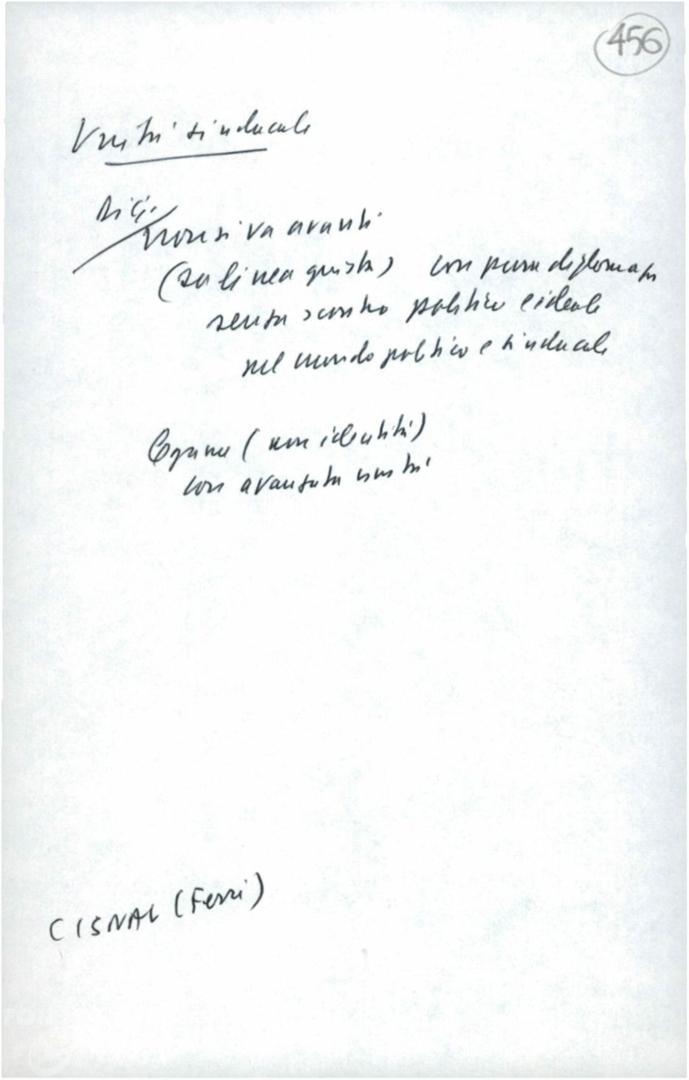 456
Unità sindacale
non si va avanti
(su linea giusta) con pura diplomazia
senza scontro politico e ideale
nel mondo politico e sindacale
Legame (non identità)
con avanzata unità
CISNAL (Ferri)